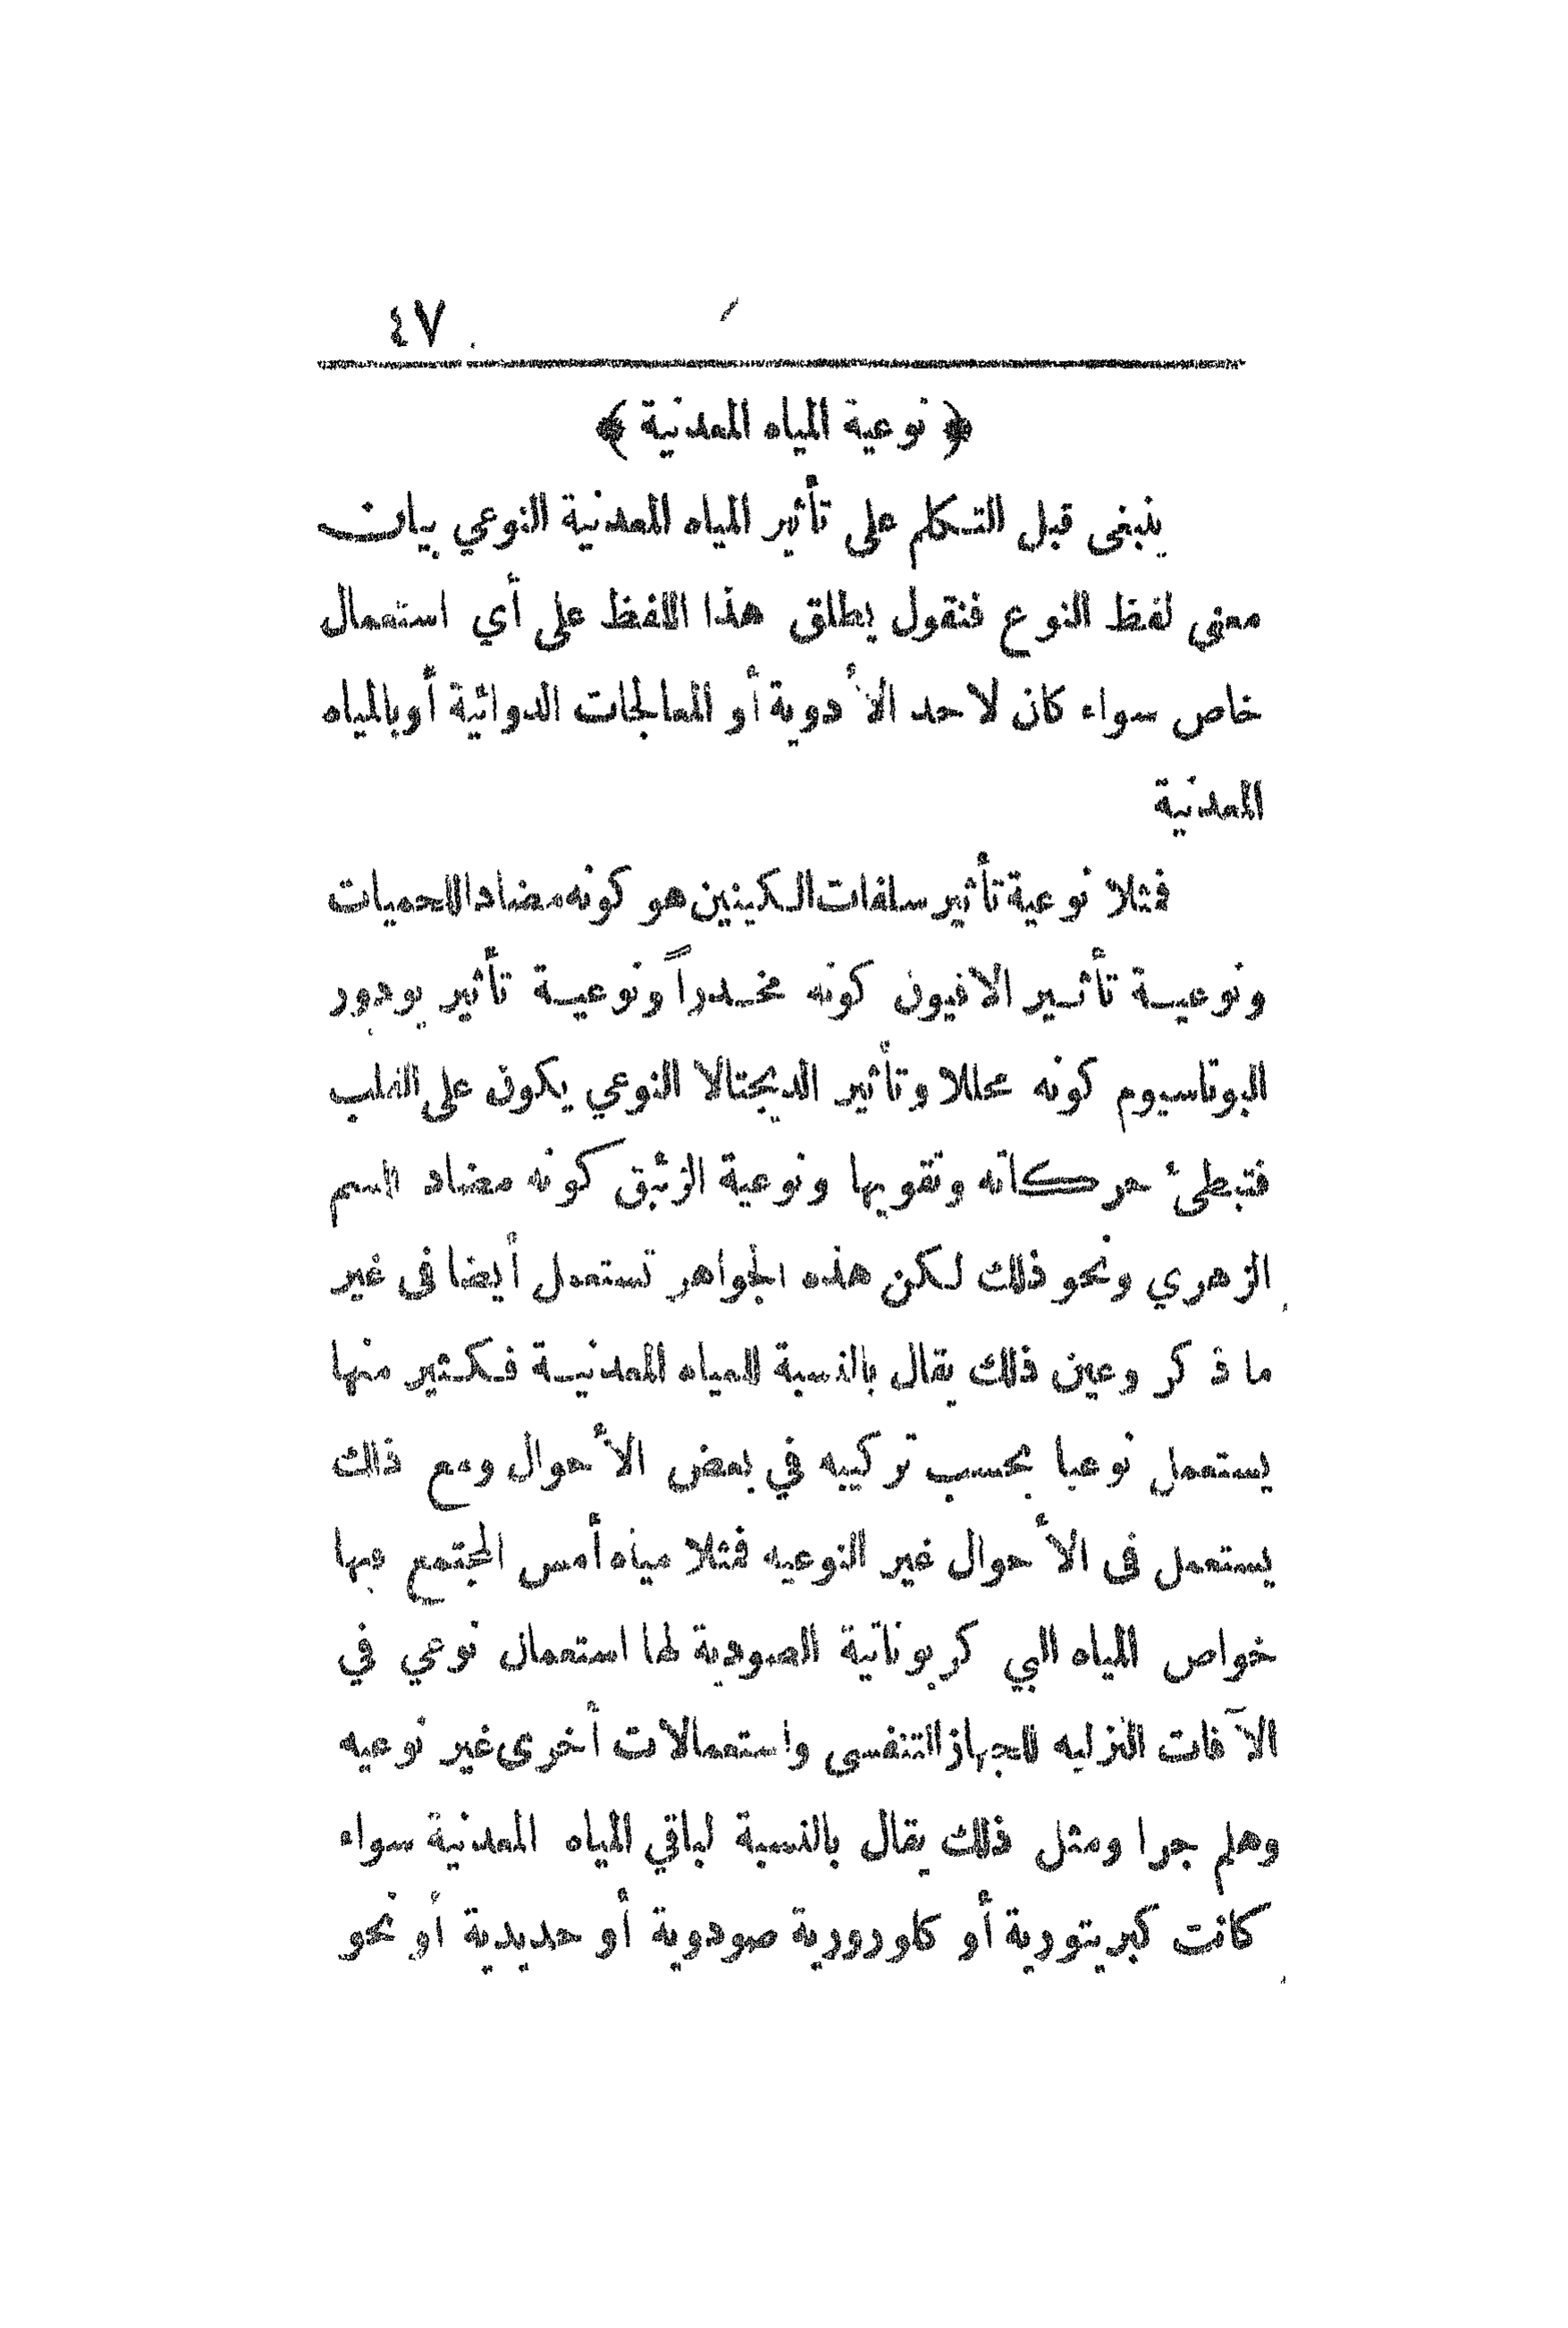 ٤٧
﴿ نوعية المياه المعدنية ﴾
ينبغى قبل التكلم على تأثير المياه المعدنية النوعي بيان
معنى لفظ النوع فنقول يطلق هذا اللفظ على أي استعمال
خاص سواء كان لاحد الأدوية أو المعالجات الدوائية أو بالمياه
المعدنية
فمثلا نوعية تأثير سلفات الكينين هو كونه مضادا للحميات
ونوعية تأثير الافيون كونه مخدراً ونوعية تأثير يودور
البوتاسيوم كونه محللا وتأثير الديجتالا النوعي يكون على القلب
فتبطئ حركاته وتقويها ونوعية الزئبق كونه مضاد للسم
الزهري ونحو ذلك لكن هذه الجواهر تستعمل أيضا فى غير
ما ذكر وعين ذلك يقال بالنسبة للمياه المعدنية فكثير منها
يستعمل نوعيا بحسب تركيبه في بعض الأحوال ومع ذلك
يستعمل فى الأحوال غير النوعيه فمثلا مياه أمس المجتمع فيها
خواص المياه البي كربوناتية الصودية لها استعمال نوعي في
الآفات النزليه للجهاز التنفسى واستعمالات أخرى غير نوعيه
وهلم جرا ومثل ذلك يقال بالنسبة لباقي المياه المعدنية سواء
كانت كبريتورية أو كلورورية صودوية أو حديدية أو نحو